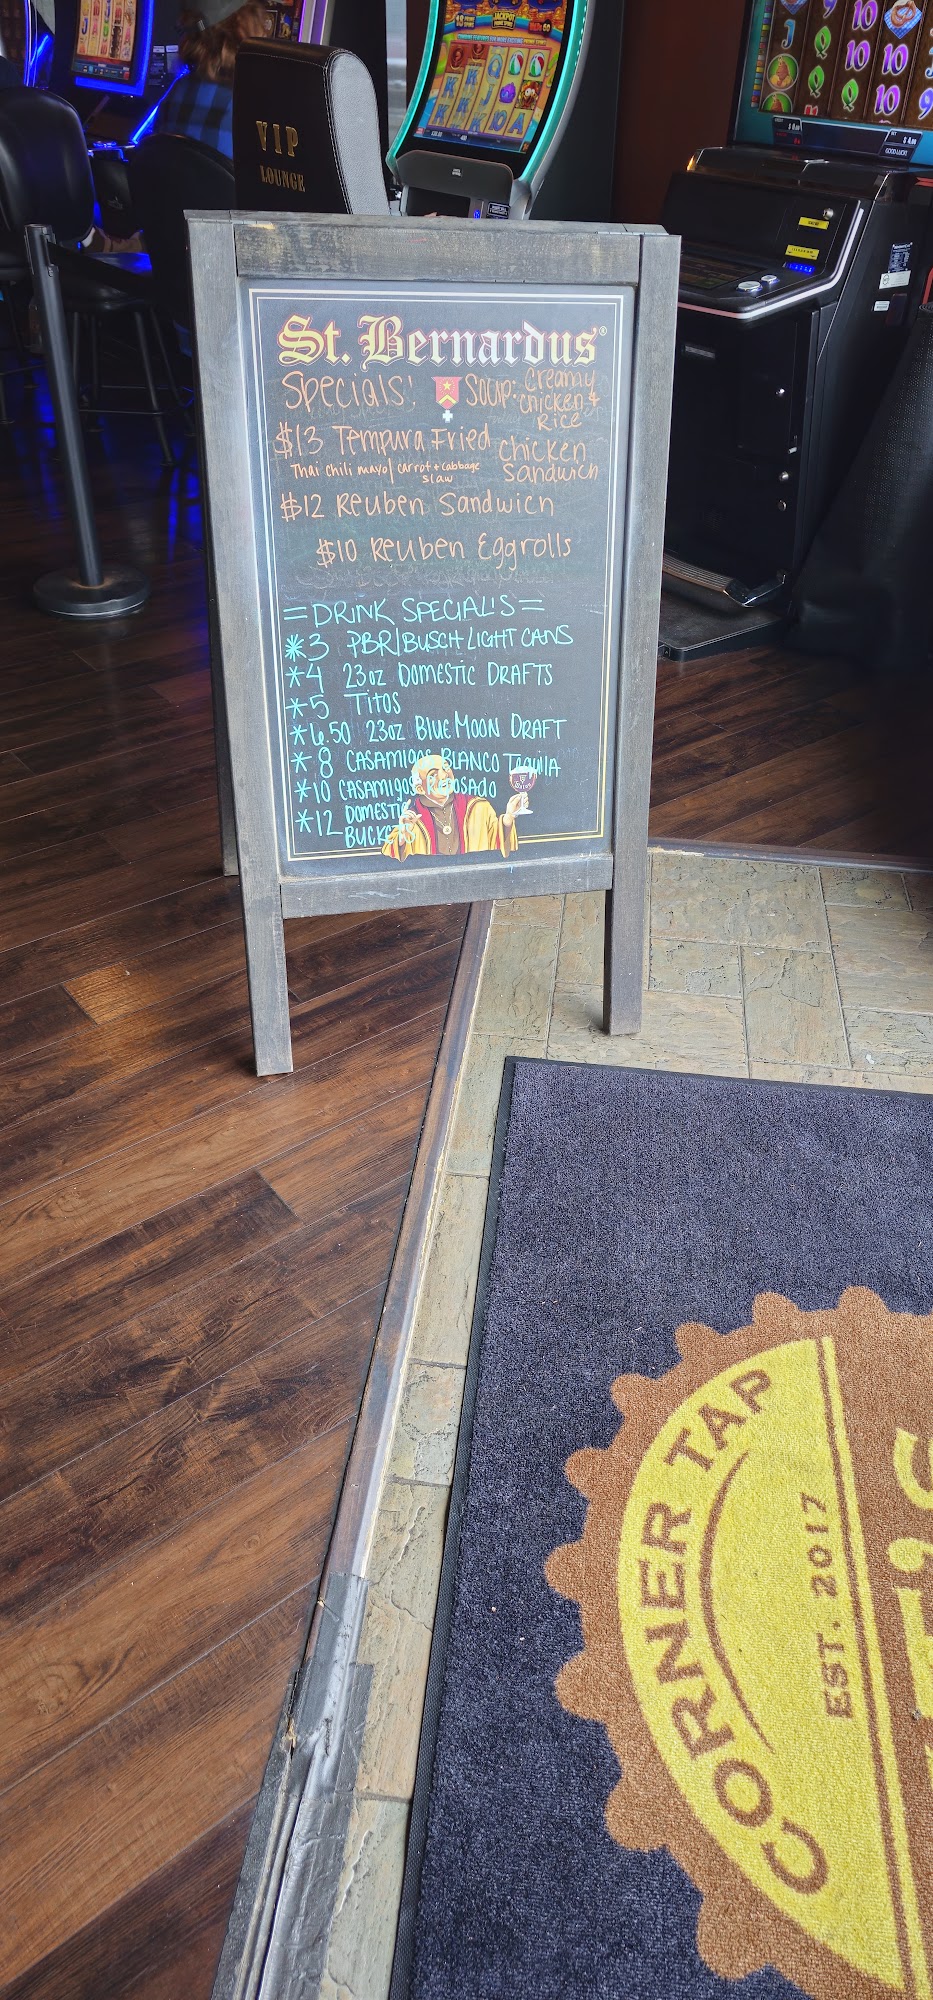 VIP
LOUNGE
JACKPOT
GOOD LUCK!
St. Bernardus®
Specials! Soup: Creamy chicken & Rice
$13 Tempura Fried Chicken Sandwich
Thai chili mayo/carrot + cabbage slaw
$12 Reuben Sandwich
$10 Reuben Eggrolls
= DRINK SPECIAL'S =
*3 PBR/BUSCH LIGHT CANS
*4 23oz DOMESTIC DRAFTS
*5 TITOS
*6.50 23oz BLUE MOON DRAFT
*8 CASAMIGOS BLANCO TEQUILA
*10 CASAMIGOS REPOSADO
*12 DOMESTIC
BUCKETS
CORNER TAP
EST. 2017